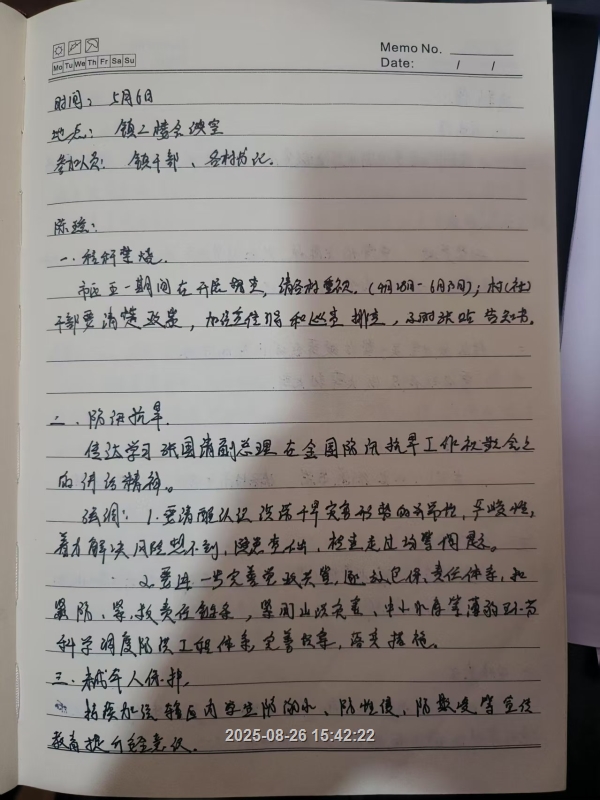 Memo No.
Date: / /
Mo Tu We Th Fr Sa Su
时间：5月6日
地点：镇二楼会议室
参加人员：镇干部、各村书记.
陈
一、秸秆禁烧.
市区五一期间在开展督查，请各村重视.
干部要清楚政策，加强宣传引导和巡查排查，及时张贴告知书.
二、防汛抗旱.
传达学习张国清副总理在全国防汛抗旱工作视频会上
的讲话精神。
强调：1.要清醒认识洪涝干旱灾害形势的复杂性，严峻性，
着力解决风险想不到，隐患查不出，检查走过场等问题。
2.要进一步完善党政共管，责任体系，扣
紧防、紧救责任链条，紧盯山洪灾害、中小水库等薄弱环节
科学调度防洪工程体系，完善预案，落实措施.
三、未成年人保护.
持续加强辖区内学生防溺水、防性侵、防欺凌等宣传
教育
2025-08-26 15:42:22